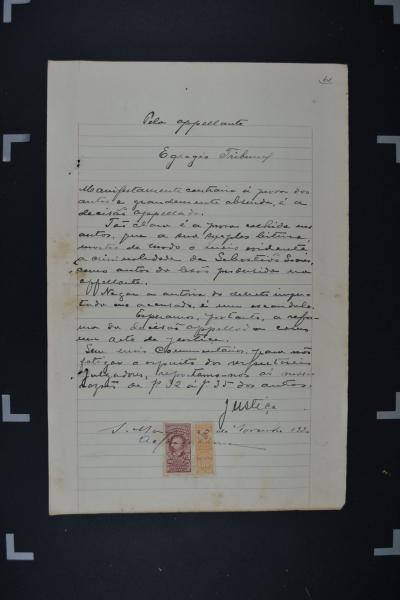 Pelo appellante
Egregio Tribunal
Manifestamente contraria á prova dos
autos e grandemente absurda, é a
decisão appellada.
Tão clara é a prova colhida nos
autos, que a sua simples leitura
mostra de modo o mais evidente
a criminalidade de Sebastião
como autor da lesão produzida na
appellante.
Negar a autoria do delicto impu-
tado ao accusado, é um escandalo.
Esperamos, portanto, a refor-
ma da decisão appellada como
um acto de justiça.
Sem mais commentarios, para não
fatigar o espirito dos respeitaveis
julgadores, reportamo-nos ás nossas
razões de f. 32 á f. 35 dos autos.
Justiça
de Novembro